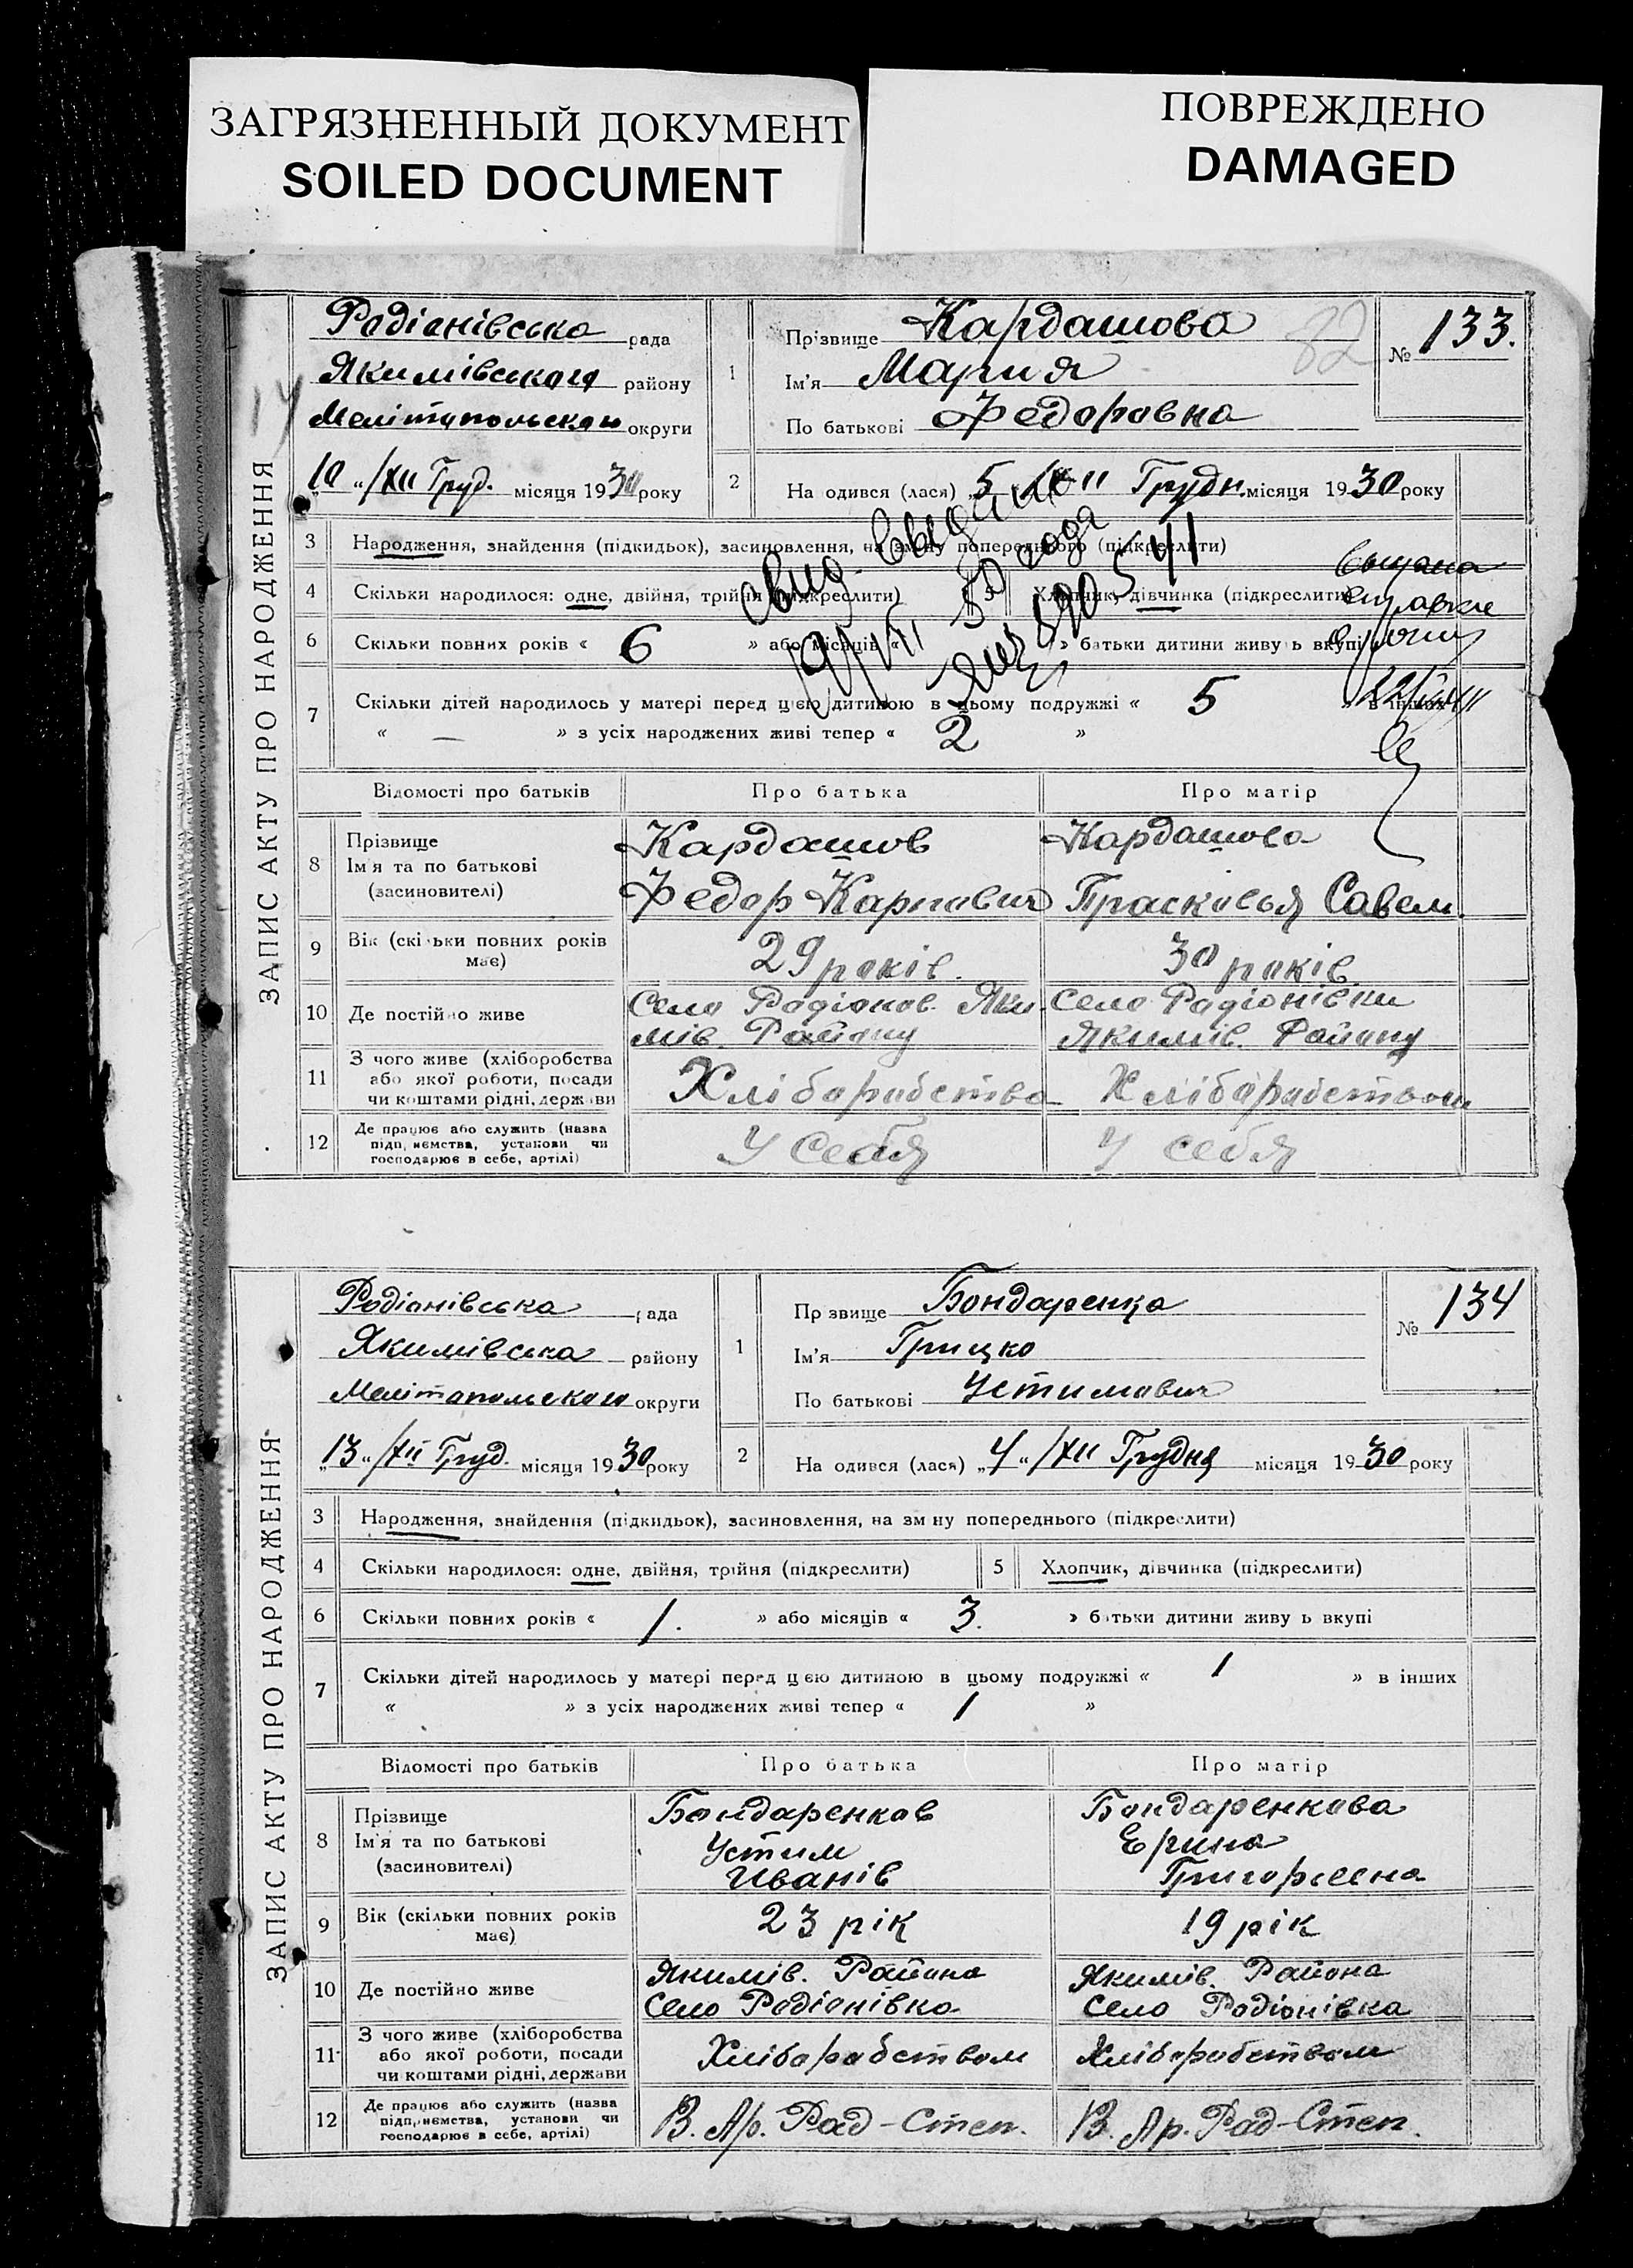 ЗАГРЯЗНЕННЫЙ ДОКУМЕНТ
SOILED DOCUMENT
ПОВРЕЖДЕНО
DAMAGED
ЗАПИС АКТУ ПРО НАРОДЖЕННЯ
14
Радіанівська рада
Якимівського району
Мелітопольскаи округи
10 "/XII Груд. місяця 1930 року
1
Прізвище Кардашова
82
№ 133.
Ім'я Мария
По батькові Федоровна
2 На одився (лася) "5" /XII Грудн. місяця 1930 року
3 Народження, знайдення (підкидьок), засиновлення, на зміну попереднього (підкреслити)
4 Скільки народилося: одне, двійня, трійня (підкреслити)
5 Хлопчик, дівчинка (підкреслити)
6 Скільки повних років « 6 » або місяців « » батьки дитини живуть вкупі
7 Скільки дітей народилось у матері перед цією дитиною в цьому подружжі « 5 » в інших
« — » з усіх народжених живі тепер « 2 »
свид. выдано
19/VII 50 года
590541
Відомості про батьків
Про батька
Про матір
8 Прізвище
Ім'я та по батькові
(засиновителі)
Кардашов
Федор Карпович
Кардашова
Прасковья Савел.
9 Вік (скільки повних років
має)
29 років.
30 років
10 Де постійно живе
Село Радіонов. Яки-
мів. Району
Село Радіонівки
Якимів. Району
11 З чого живе (хліборобства
або якої роботи, посади
чи коштами рідні, держави
Хліборобство
Хліборобством
12 Де працює або служить (назва
підприємства, установи чи
господарює в себе, артілі)
У себя
У себя
ЗАПИС АКТУ ПРО НАРОДЖЕННЯ
Радіанівська рада
Якимівська району
Мелітопольскаи округи
"13"/XII Груд. місяця 1930 року
1
Пр звище Бондаренка
№ 134
Ім'я Грицко
По батькові Устимович
2 На одився (лася) "4"/XII Грудня місяця 1930 року
3 Народження, знайдення (підкидьок), засиновлення, на зм ну попереднього (підкреслити)
4 Скільки народилося: одне, двійня, трійня (підкреслити)
5 Хлопчик, дівчинка (підкреслити)
6 Скільки повних років « 1. » або місяців « 3. » батьки дитини живу ь вкупі
7 Скільки дітей народилось у матері перед цією дитиною в цьому подружжі « 1 » в інших
« » з усіх народжених живі тепер « 1 »
Відомості про батьків
Про батька
Про матір
8 Прізвище
Ім'я та по батькові
(засиновителі)
Бондаренков
Устим
Иванів
Бондаренкова
Ерина
Григорьевна
9 Вік (скільки повних років
має)
23 рік
19 рік
10 Де постійно живе
Якимів. Района
Село Радіонівка
Якимів. Района
Село Радіонівка
11 З чого живе (хліборобства
або якої роботи, посади
чи коштами рідні, держави
Хліборобством
Хліборобством
12 Де працює або служить (назва
підприємства, установи чи
господарює в себе, артілі)
В. Ар. Рад-Степ.
В. Ар. Рад-Степ.